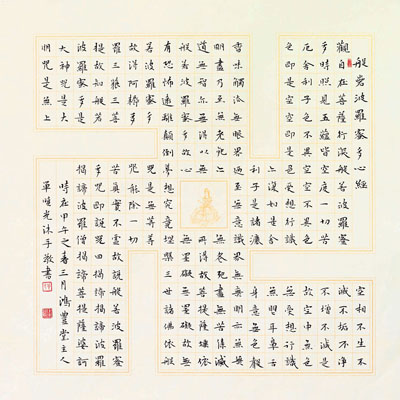 般若波羅蜜多心經
觀自在菩薩行深般若波羅蜜
多時照見五蘊皆空度一切苦
厄舍利子色不異空空不異色
色即是空空即是色受想行識
亦復如是舍
利子是諸法
空相不生不
滅不垢不淨
不增不減是
故空中無色
無受想行識
無眼耳鼻舌
身意無色聲
香味觸法無眼界乃至無意識界無無明亦無無
明盡乃至無老死亦無老死盡無苦集滅
道無智亦無得以無所得故菩提薩埵依
般若波羅蜜多故心無罣礙無罣礙故無
有恐怖遠離顛倒夢想究竟涅槃三世諸佛依般
若波羅蜜多
故得阿耨多
羅三藐三菩
提故知般若
波羅蜜多是
大神咒是大
明咒是無上
咒是無等等
咒能除一切
苦真實不虛故說般若波羅蜜
多咒即說咒曰揭諦揭諦波羅
揭諦波羅僧揭諦菩提薩婆訶
時在甲午之春三月鴻豐堂主人
光沐手敬書